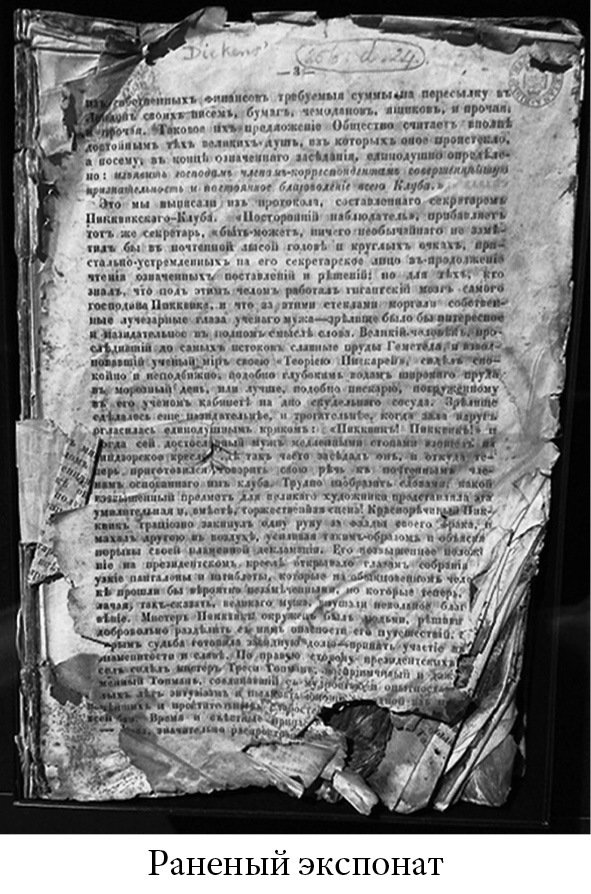 Dickens'
256. d. 24.
— 3 —
изъ собственныхъ финансовъ требуемыя суммы на пересылку въ
Лондонъ своихъ писемъ, бумагъ, чемодановъ, ящиковъ, и прочая,
и прочая. Таковое ихъ предложеніе Общество считаетъ вполнѣ
достойнымъ тѣхъ великихъ душъ, изъ которыхъ оное проистекло,
а посему, въ концѣ означеннаго засѣданія, единодушно опредѣле-
но: изъявить господамъ членамъ-корреспондентамъ совершеннѣйшую
признательность и постоянное благоволеніе всего Клуба.»
Это мы выписали изъ протокола, составленнаго секретаремъ
Пикквикскаго-Клуба. «Посторонній наблюдатель», прибавляетъ
тотъ же секретарь, «быть-можетъ, ничего необычайнаго не замѣ-
тилъ бы въ почтенной лысой головѣ и круглыхъ очкахъ, при-
стально-устремленныхъ на его секретарское лицо въ-продолженіе
чтенія означенныхъ поставленій и рѣшеній; но для тѣхъ, кто
зналъ, что подъ этимъ челомъ работалъ гигантскій мозгъ самого
господина Пикквика, и что за этими стеклами моргали собствен-
ные лучезарные глаза ученаго мужа—зрѣлище было бы интересное
и назидательное въ полномъ смыслѣ слова. Великій-человѣкъ, про-
слѣдившій до самыхъ истоковъ славные пруды Гемстеда, и взвол-
новавшій ученый міръ своею «Теоріею Пискарей», сидѣлъ спо-
койно и неподвижно, подобно глубокимъ водамъ широкаго пруда
въ морозный день, или лучше, подобно пискарю, погруженному
въ его ученомъ кабинетѣ на дно скудельнаго сосуда. Зрѣлище
сдѣлалось еще назидательнѣе, и трогательнѣе, когда зала вдругъ
огласилась единодушнымъ крикомъ: «Пикквикъ! Пикквикъ!» и
когда сей достославный мужъ медленными стопами взошелъ на
виндзорское кресло, гдѣ такъ часто засѣдалъ онъ, и откуда те-
перь приготовился говорить свою рѣчь къ почтеннымъ чле-
намъ основаннаго имъ клуба. Трудно изобразить словами: какой
возвышенный предметъ для великаго художника представляла эта
умилительная и, вмѣстѣ, торжественная сцена! Краснорѣчивый Пик-
квикъ граціозно закинулъ одну руку за фалды своего фрака, и
махалъ другою въ воздухѣ, усиливая такимъ-образомъ и объясняя
порывы своей пламенной декламаціи. Его возвышенное положе
ніе на президентскомъ креслѣ открывало глазамъ собранія
узкіе панталоны и штиблеты, которые на обыкновенномъ чело
кѣ прошли бы вѣроятно незамѣченными, но которые теперь,
лачая, такъ-сказать, великаго мужа, внушали невольное благ
вѣніе. Мистеръ Пикквикъ окруженъ былъ людьми, рѣшивш
добровольно раздѣлить съ нимъ опасности его путешествій,
рымъ судьба готовила завидную долю—принять участіе
знаменитости и славѣ. По правую сторону президентскихъ
селъ сидѣлъ мистеръ Треси Топманъ,
менный Топманъ, соединявшій съ мудростью и опытностью
лыхъ лѣтъ энтузіазмъ и пылкость
и простительныхъ
Время и съѣстные
значительно распространили
Раненый экспонат